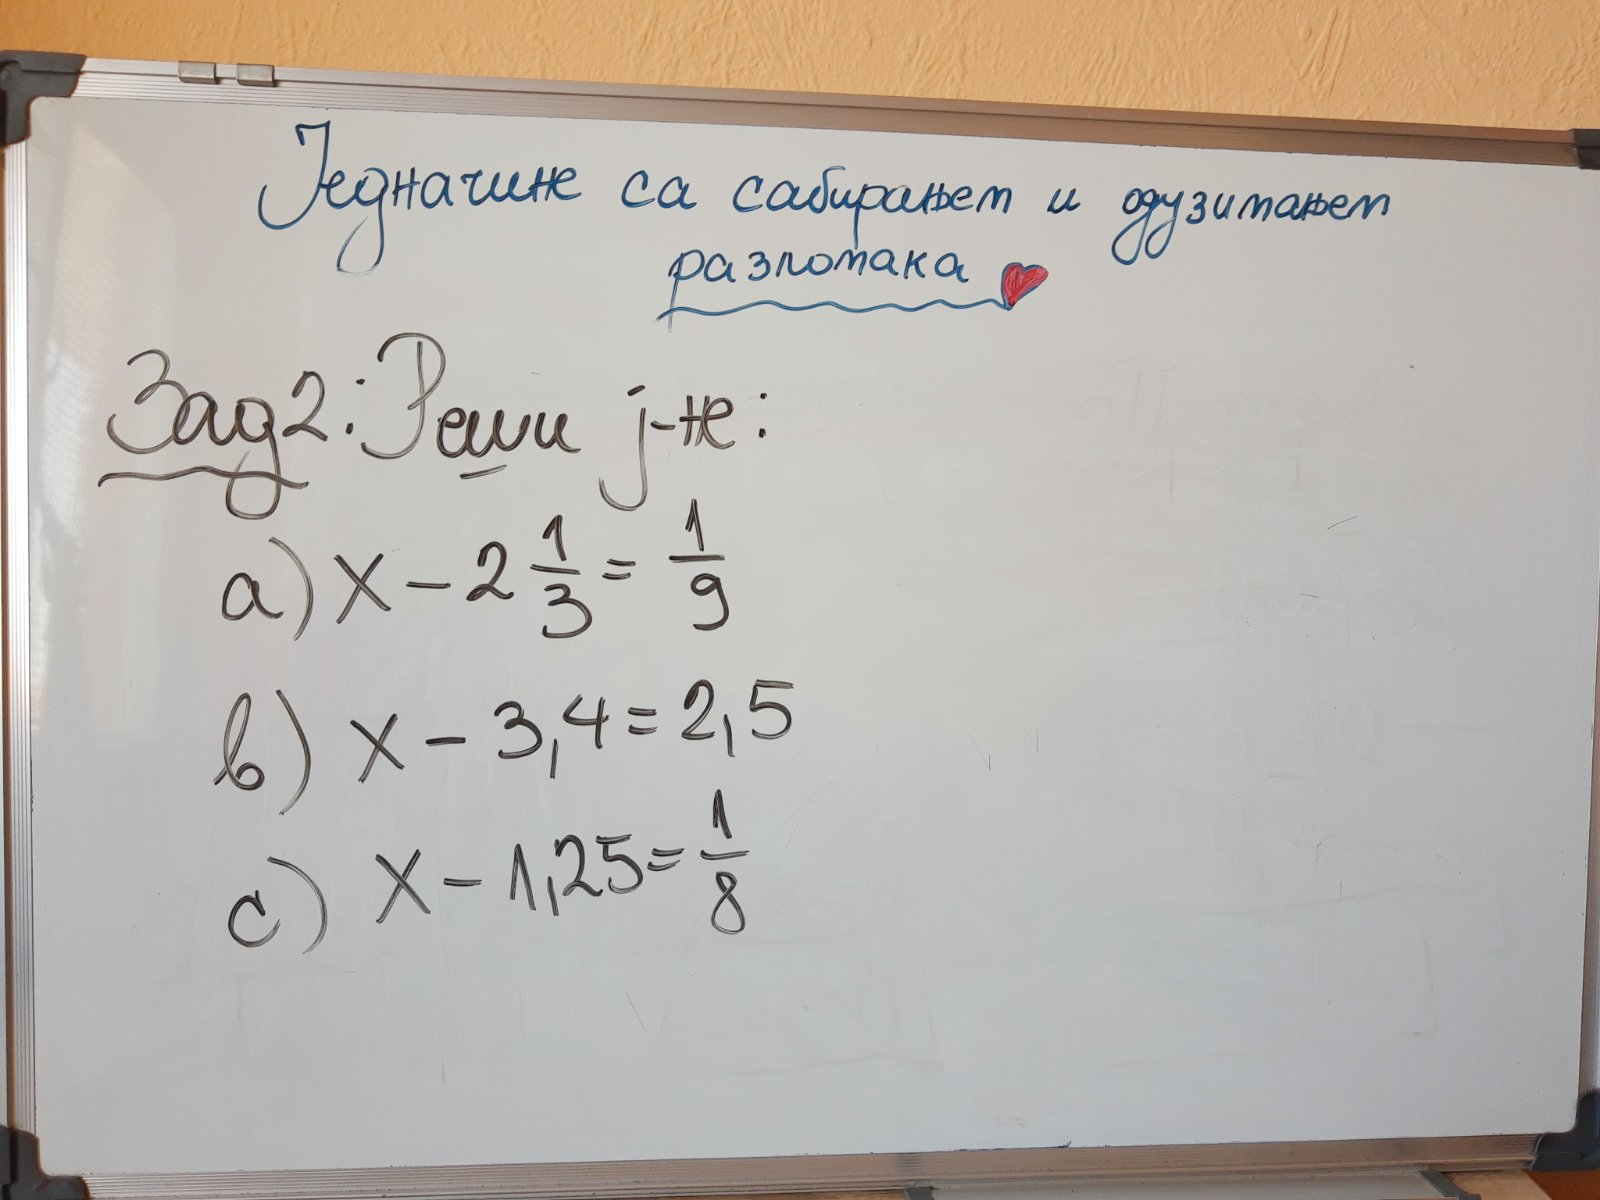 Једначине са сабирањем и одузимањем
разломака
Зад 2: Реши ј-не:
а) x - 2 1/3 = 1/9
в) x - 3,4 = 2,5
с) x - 1,25 = 1/8